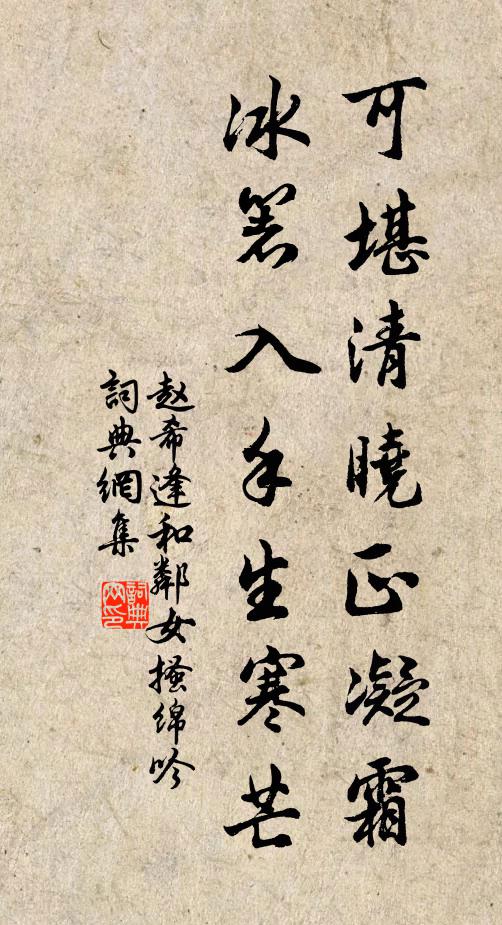 可堪清曉正凝霜
冰箸入手生寒芒
赵希逢和鄰女搔绵吟
詞典網集
詞典
网印